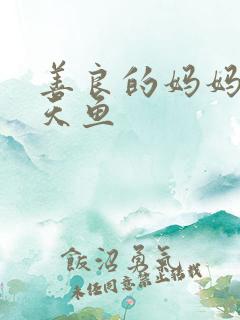 善良的妈妈
天鱼
飯沼勇気
未经同意禁止转载